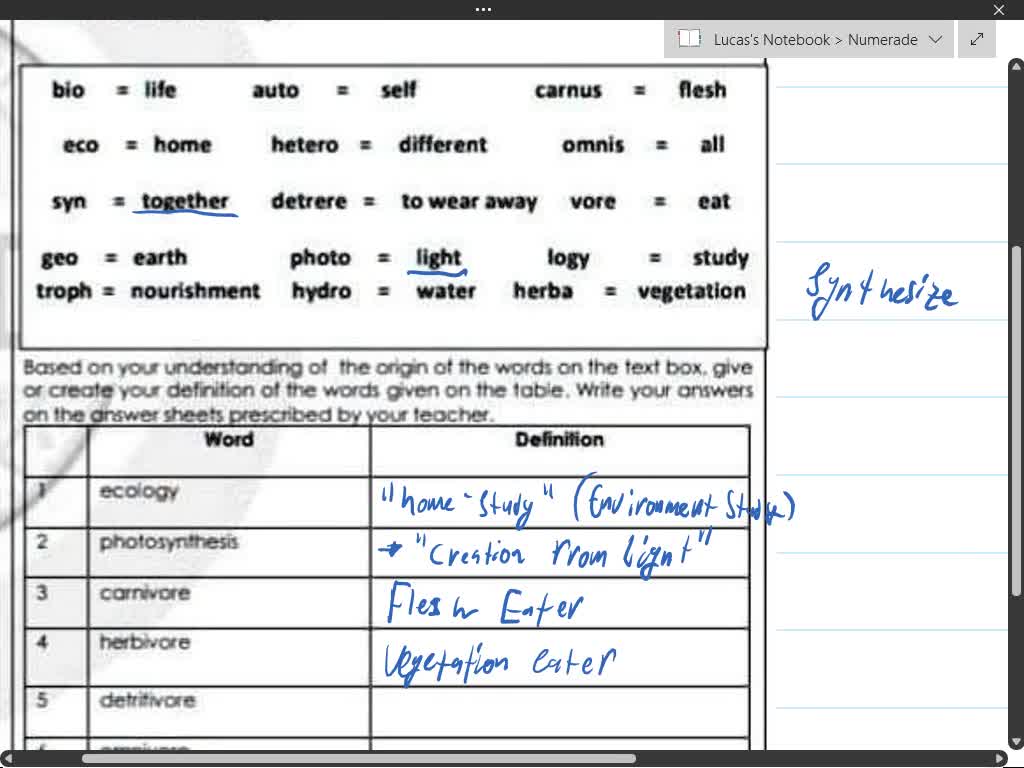 Lucas's Notebook > Numerade
bio = life auto = self carnus = flesh
eco = home hetero = different omnis = all
syn = together detrere = to wear away vore = eat
geo = earth photo = light logy = study
troph = nourishment hydro = water herba = vegetation
Synthesize
Based on your understanding of the origin of the words on the text box, give
or create your definition of the words given on the table. Write your answers
on the answer sheets prescribed by your teacher.
Word Definition
1 ecology "home-study" (Environment Study)
2 photosynthesis → "Creation from light"
3 carnivore Flesh Eater
4 herbivore Vegetation eater
5 detritivore